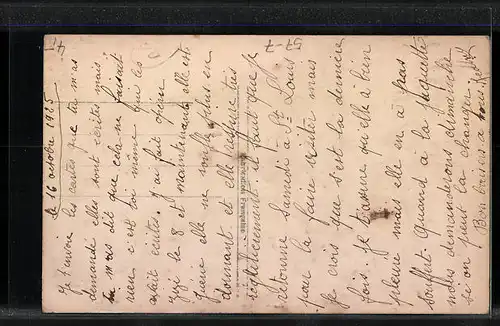 le 16 octobre 1925
Je t'envoie les cartes que tu m'as
demandé elles sont écrites mais
tu m'as dit que cela ne faisait
rien c'est toi même qui les
avait écrites. J'ai fait opérer
Zizi le 8 et maintenant elle est
guérie elle ne souffre plus en
dormant et elle respire très
régulièrement. il faut que je
retourne samedi à St Louis
pour la faire visiter mais
je crois que s'est la dernière
fois. je t'assure qu'elle à bien
pleuré mais elle en a pas
souffert. Quand a la jaquette
nous demanderons démarche
si on peut la changer.
Bon baisers a
57-7
Fabrication Française